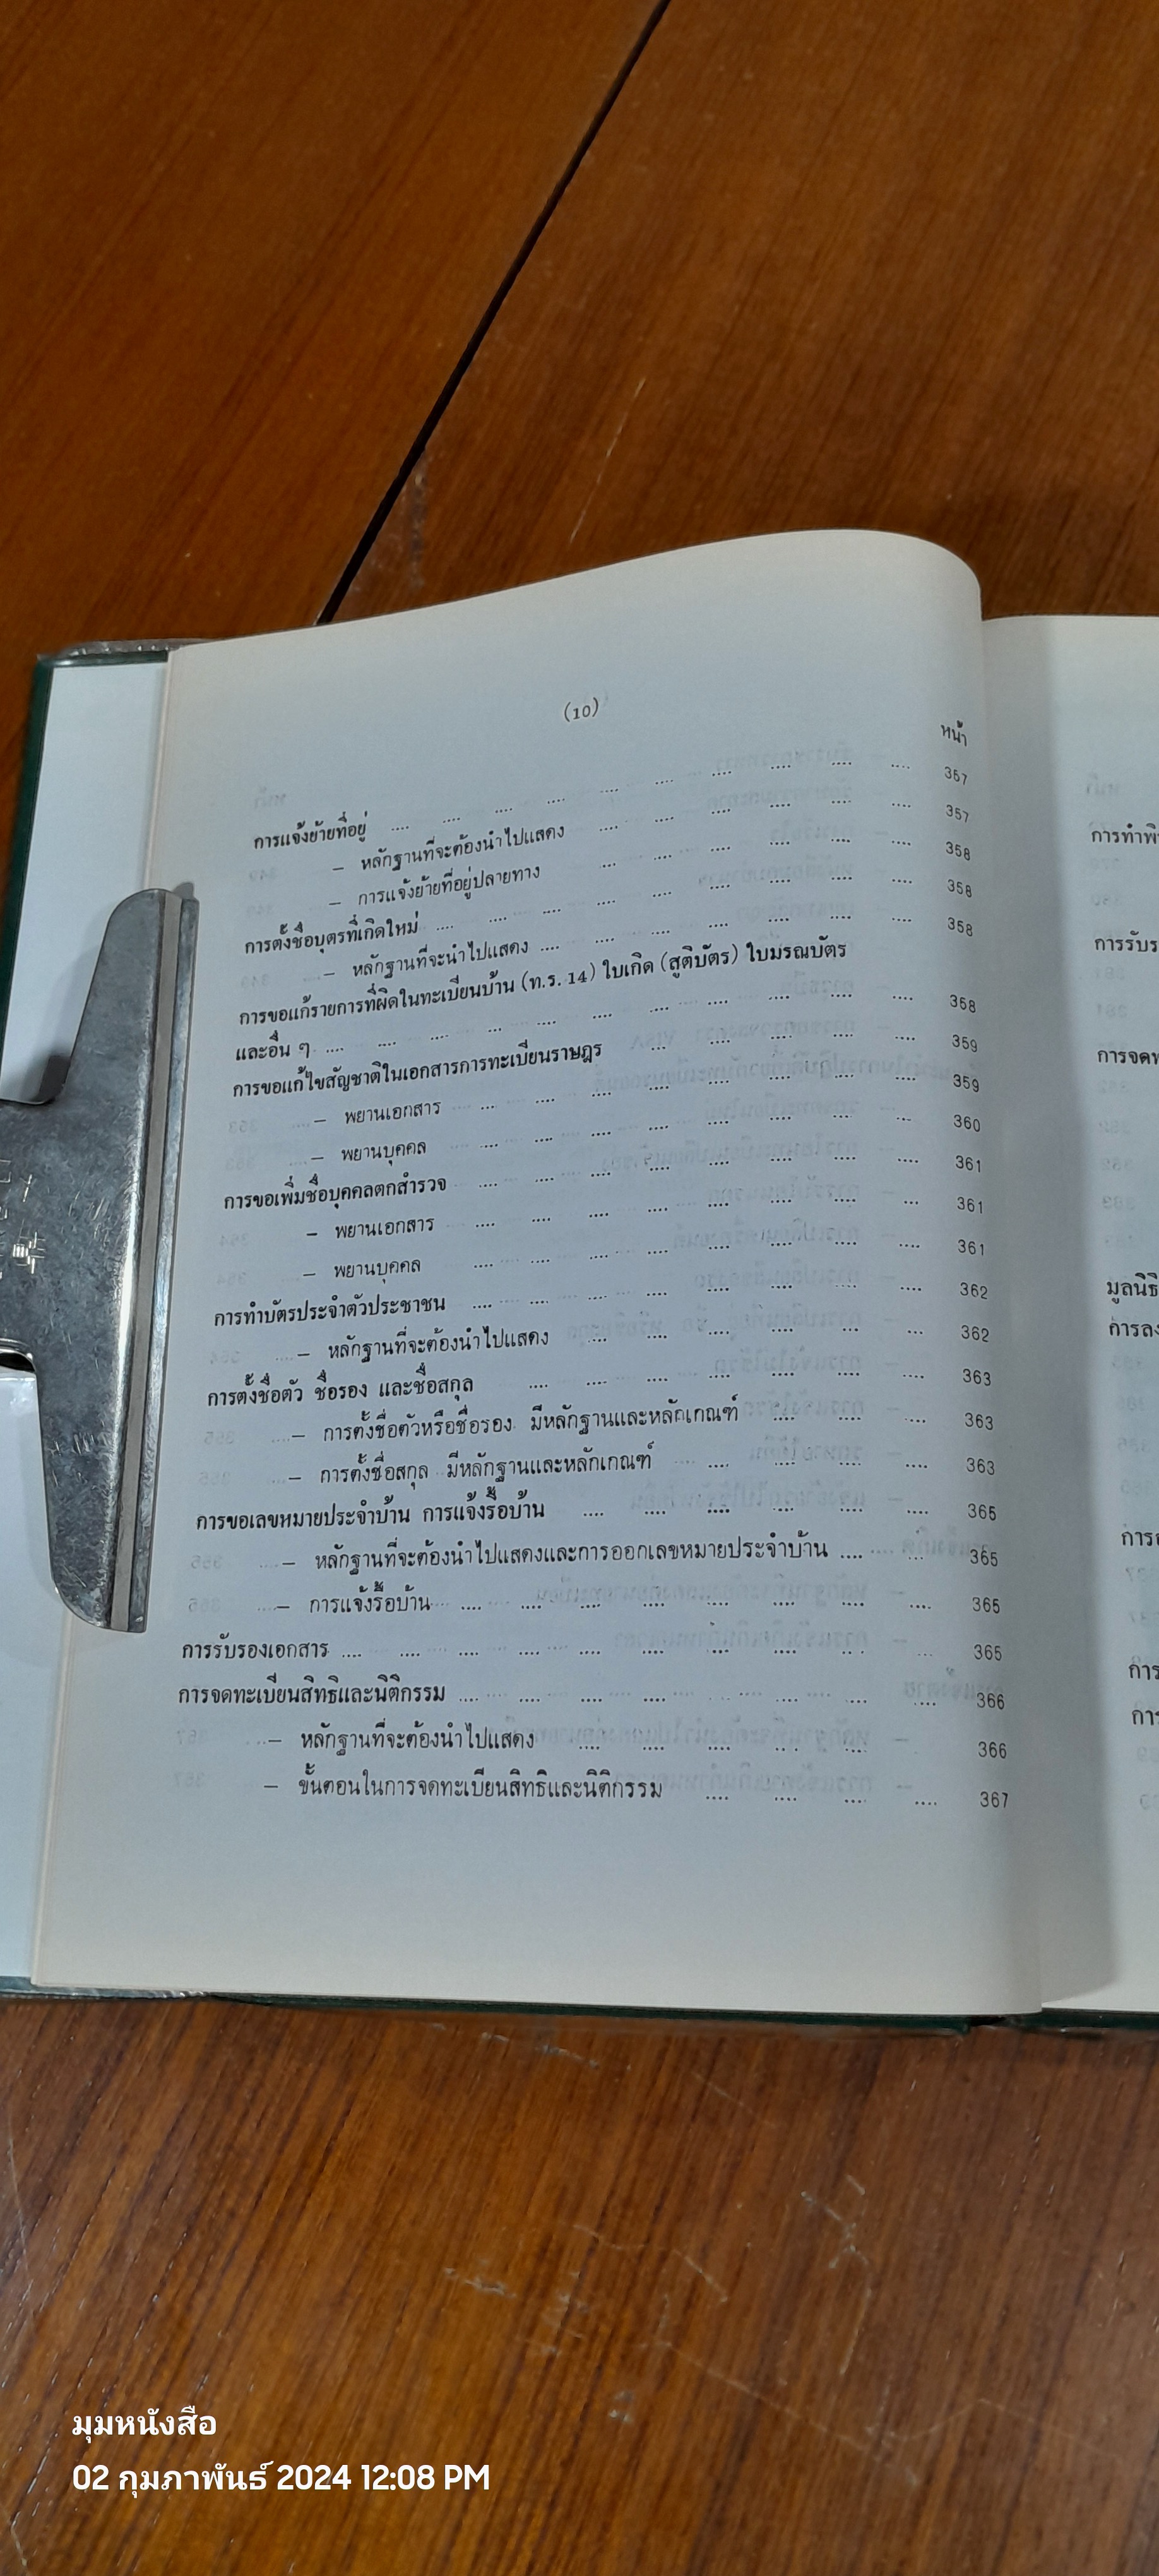 (10)
หน้า
การแจ้งย้ายที่อยู่ .... .... .... .... .... .... .... .... .... .... 357
– หลักฐานที่จะต้องนำไปแสดง .... .... .... .... .... .... 357
– การแจ้งย้ายที่อยู่ปลายทาง .... .... .... .... .... .... 358
การตั้งชื่อบุตรที่เกิดใหม่ .... .... .... .... .... .... .... .... .... 358
– หลักฐานที่จะนำไปแสดง .... .... .... .... .... .... .... 358
การขอแก้รายการที่ผิดในทะเบียนบ้าน (ท.ร. 14) ใบเกิด (สูติบัตร) ใบมรณบัตร
และอื่น ๆ .... .... .... .... .... .... .... .... .... .... .... 358
การขอแก้ไขสัญชาติในเอกสารการทะเบียนราษฎร .... .... .... .... .... 359
– พยานเอกสาร .... .... .... .... .... .... .... .... 359
– พยานบุคคล .... .... .... .... .... .... .... .... 360
การขอเพิ่มชื่อบุคคลตกสำรวจ .... .... .... .... .... .... .... .... 361
– พยานเอกสาร .... .... .... .... .... .... .... .... 361
– พยานบุคคล .... .... .... .... .... .... .... .... 361
การทำบัตรประจำตัวประชาชน .... .... .... .... .... .... .... .... 362
– หลักฐานที่จะต้องนำไปแสดง .... .... .... .... .... .... 362
การตั้งชื่อตัว ชื่อรอง และชื่อสกุล .... .... .... .... .... .... .... 363
– การตั้งชื่อตัวหรือชื่อรอง มีหลักฐานและหลักเกณฑ์ .... .... .... 363
– การตั้งชื่อสกุล มีหลักฐานและหลักเกณฑ์ .... .... .... .... 363
การขอเลขหมายประจำบ้าน การแจ้งรื้อบ้าน .... .... .... .... .... .... 365
– หลักฐานที่จะต้องนำไปแสดงและการออกเลขหมายประจำบ้าน .... .... 365
– การแจ้งรื้อบ้าน .... .... .... .... .... .... .... .... 365
การรับรองเอกสาร .... .... .... .... .... .... .... .... .... .... 365
การจดทะเบียนสิทธิและนิติกรรม .... .... .... .... .... .... .... .... 366
– หลักฐานที่จะต้องนำไปแสดง .... .... .... .... .... 366
– ขั้นตอนในการจดทะเบียนสิทธิและนิติกรรม .... .... .... .... 367
การทำพิ
การรับร
การจดท
มูลนิธิ
การลง
มุมหนังสือ
02 กุมภาพันธ์ 2024 12:08 PM